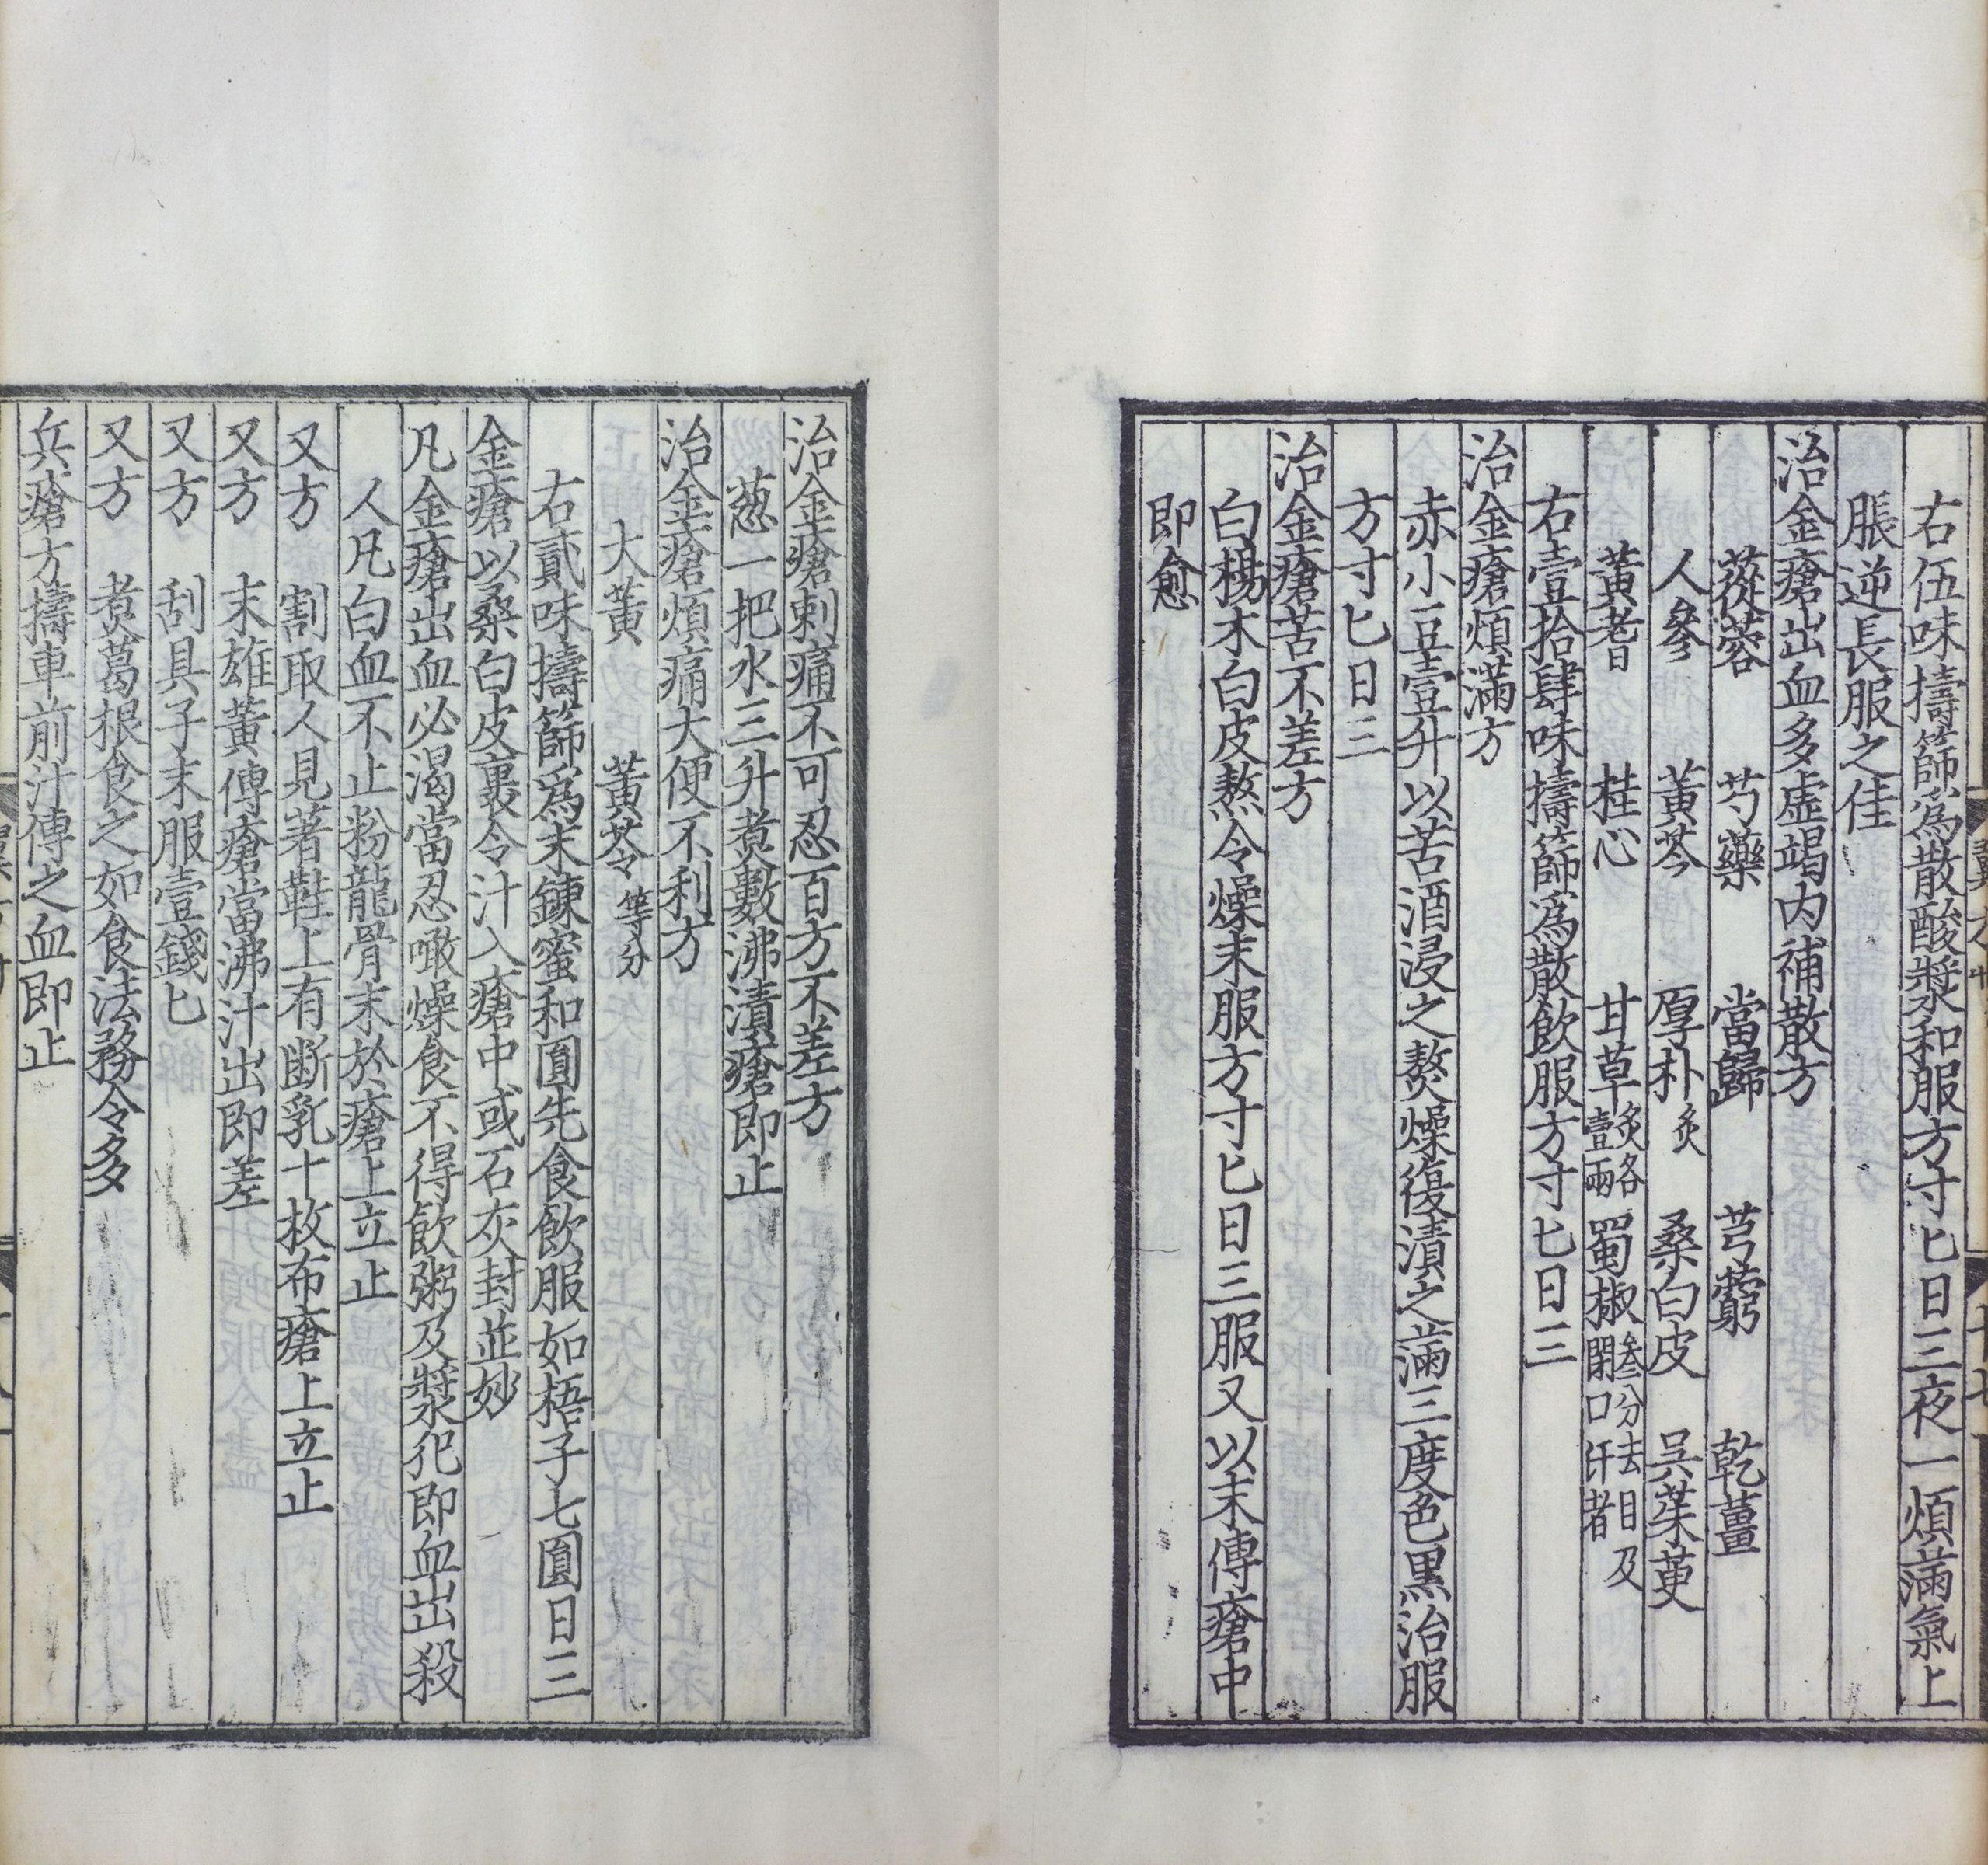 右伍味擣篩為散酸漿和服方寸匕日三夜一煩滿氣上
脹逆長服之佳
治金瘡出血多虛竭内補散方
蓯蓉 芍藥 當歸 芎藭 乾薑
人參 黃芩 厚朴炙 桑白皮 吳茱萸
黃耆 桂心 甘草炙各壹兩 蜀椒叁分去目及閉口汗者
右壹拾肆味擣篩為散飲服方寸匕日三
治金瘡煩滿方
赤小豆壹升以苦酒浸之熬燥復漬之滿三度色黑治服
方寸匕日三
治金瘡苦不差方
白楊木白皮熬令燥末服方寸匕日三服又以末傅瘡中
即愈
治金瘡刺痛不可忍百方不差方
葱一把水三升煮數沸漬瘡即止
治金瘡煩痛大便不利方
大黃 黃芩等分
右貳味擣篩為末鍊蜜和圓先食飲服如梧子七圓日三
金瘡以桑白皮裹令汁入瘡中或石灰封並妙
凡金瘡出血必渴當忍噉燥食不得飲粥及漿犯即血出殺
人凡白血不止粉龍骨末於瘡上立止
又方 割取人見著鞋上有斷乳十枚布瘡上立止
又方 末雄黃傅瘡當沸汁出即差
又方 刮具子末服壹錢匕
又方 煮葛根食之如食法務令多
兵瘡方擣車前汁傅之血即止